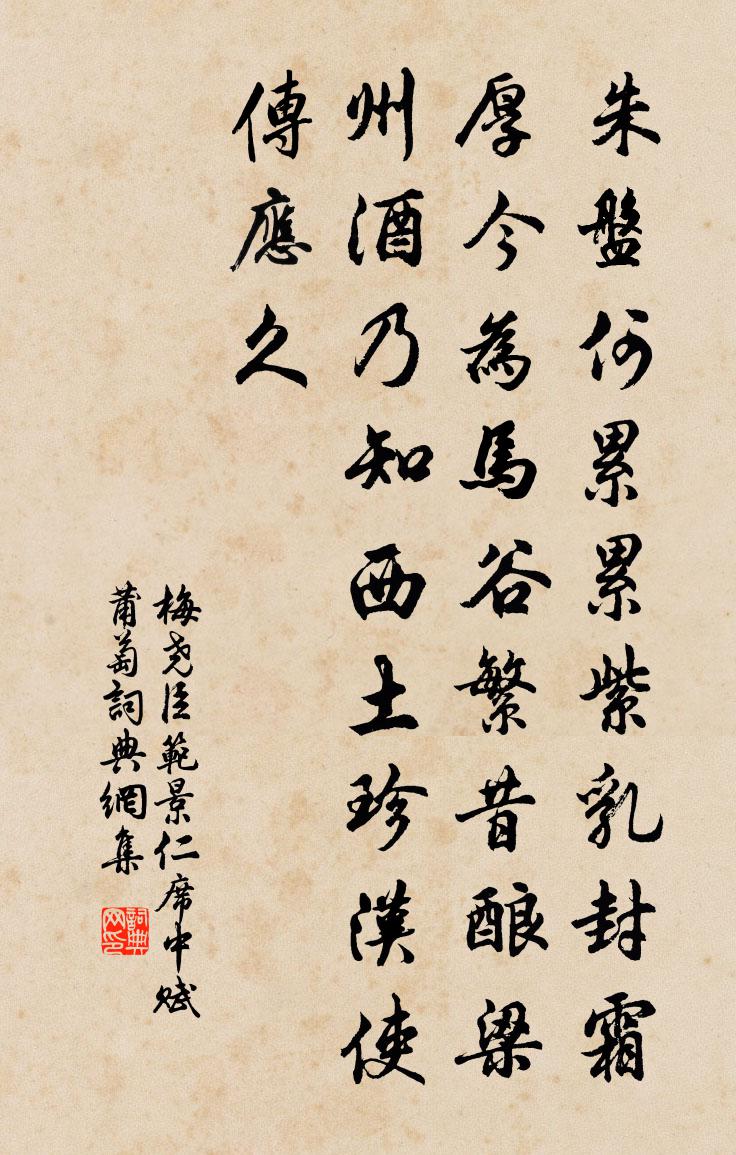 朱盤何累累紫乳封霜
厚今為馬谷繁昔酿梁
州酒乃知西土珍漢使
傳應久
梅堯臣範景仁席中賦
莆萄詞典網集
詞典网印